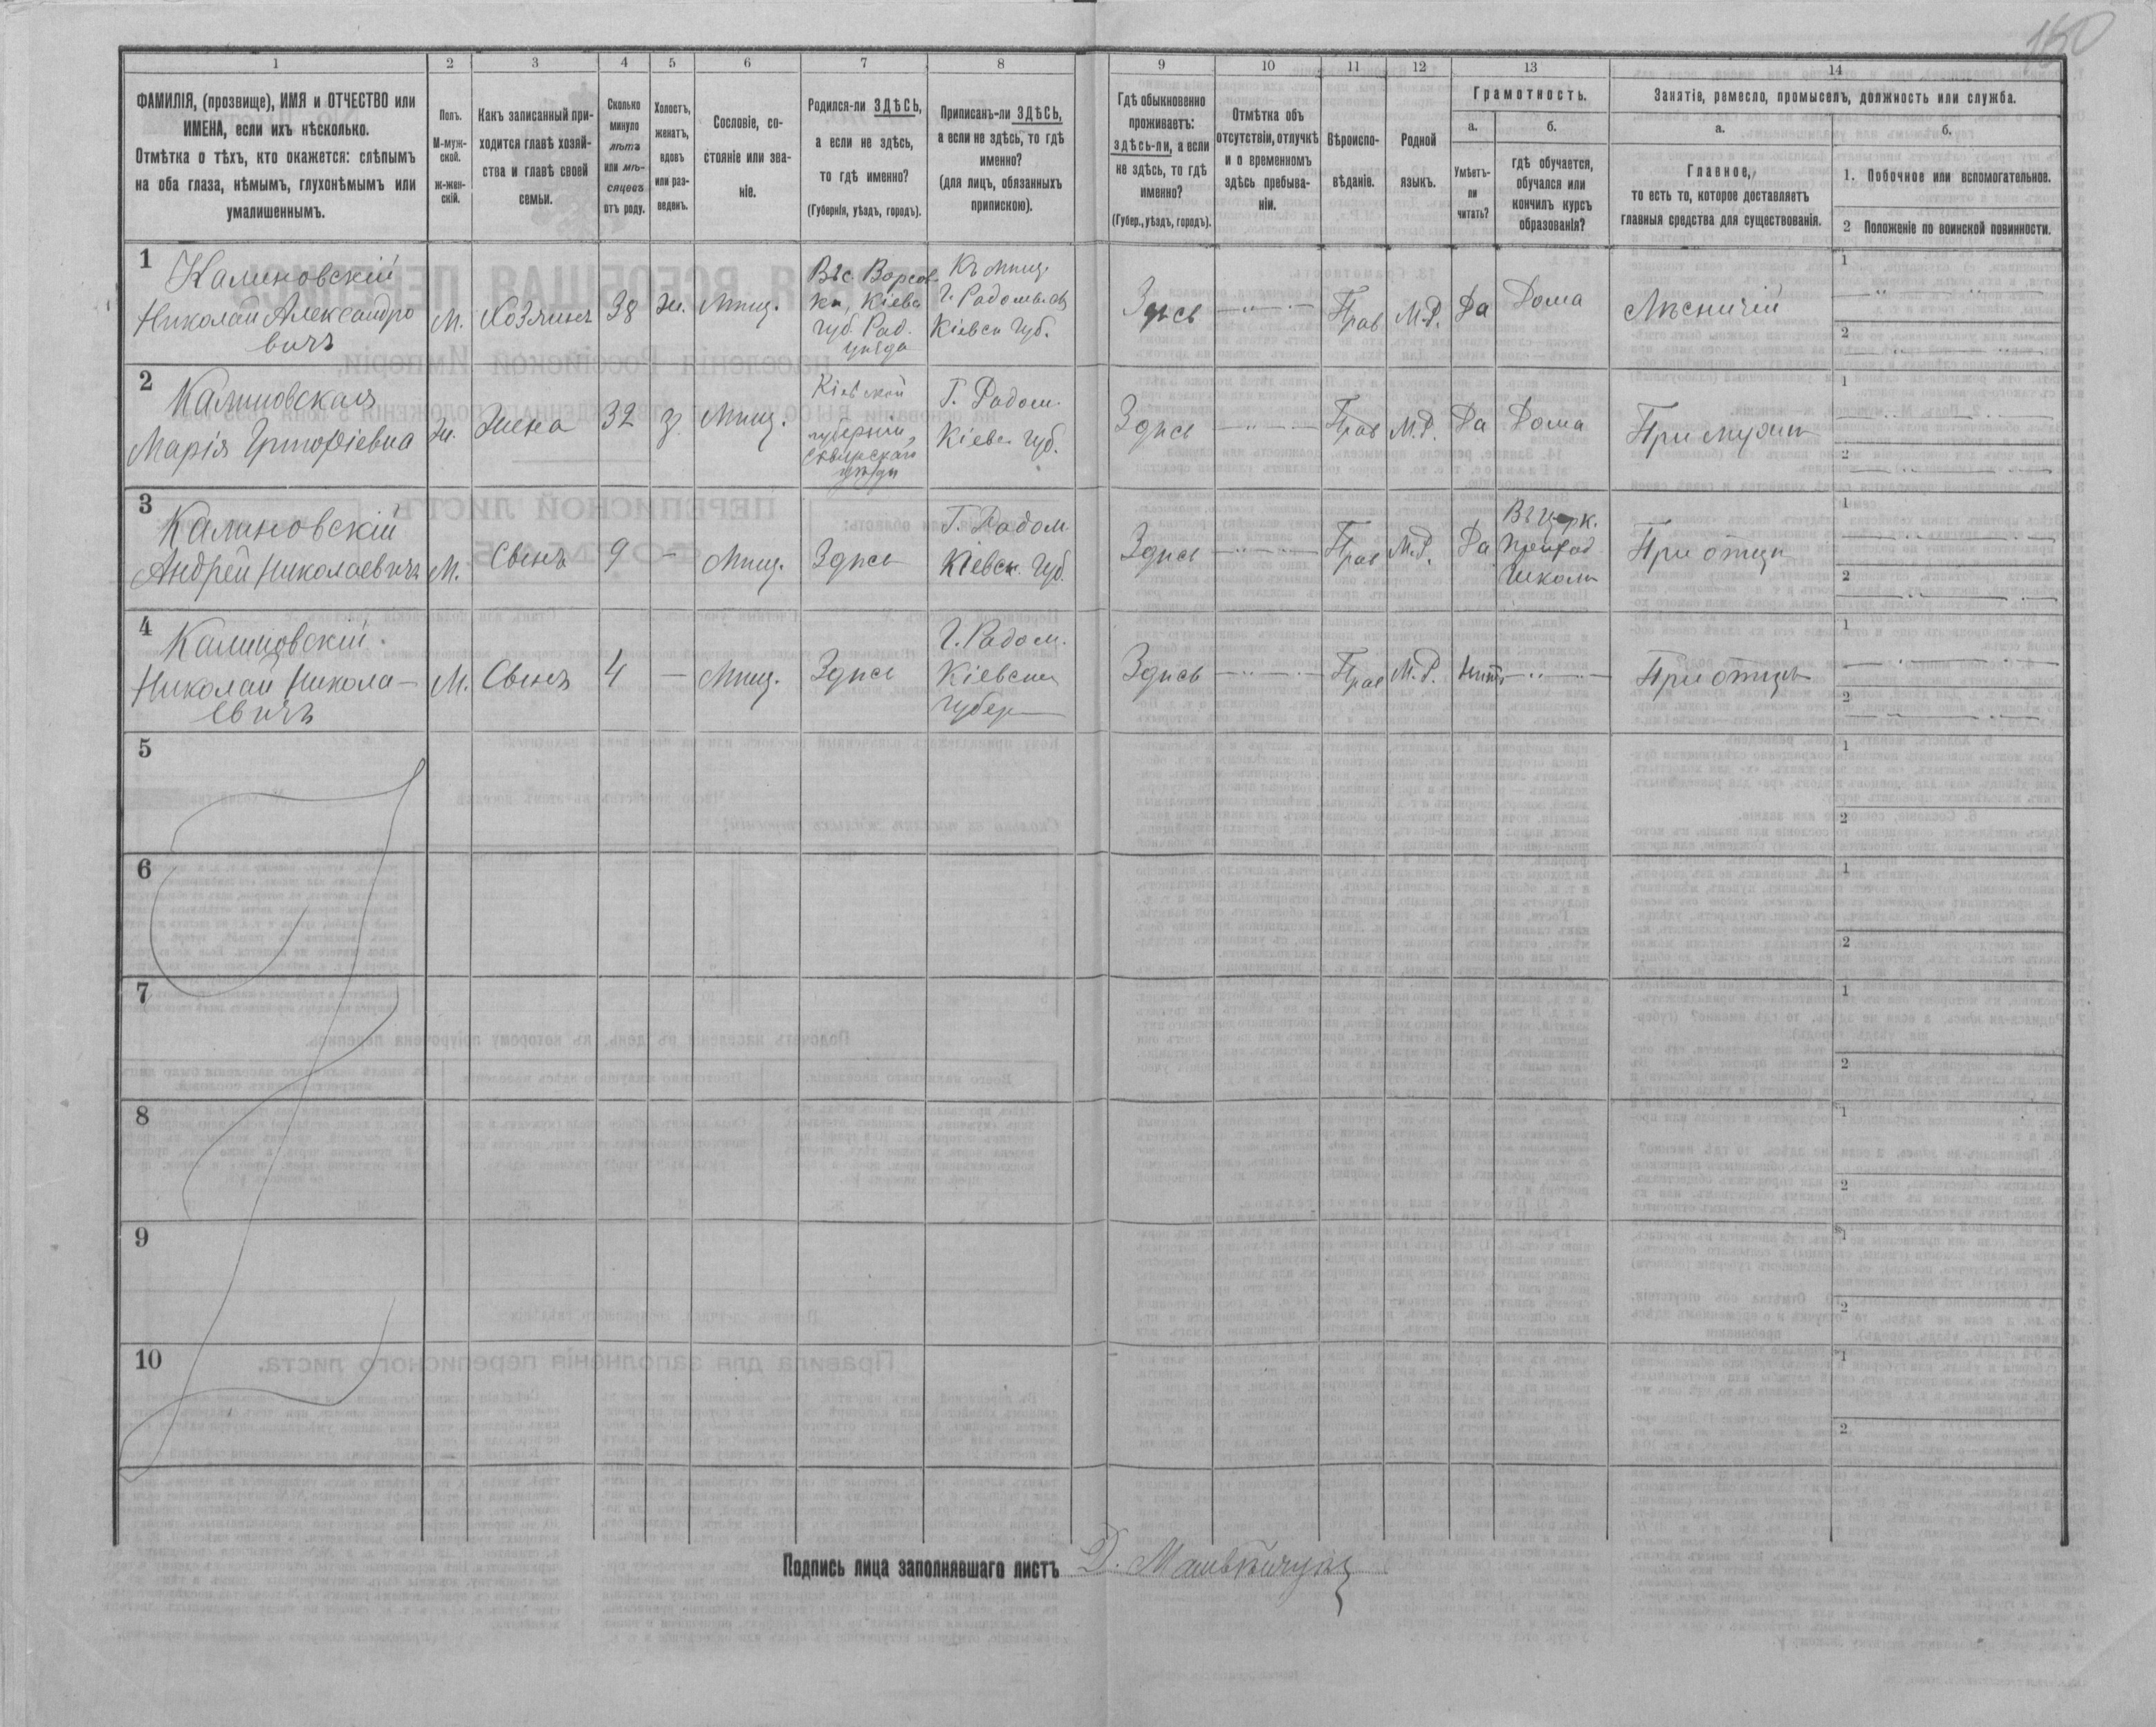 150
1 2 3 4 5 6 7 8 9 10 11 12 13 14
ФАМИЛІЯ, (прозвище), ИМЯ и ОТЧЕСТВО или
ИМЕНА, если ихъ нѣсколько.
Отмѣтка о тѣхъ, кто окажется: слѣпымъ
на оба глаза, нѣмымъ, глухонѣмымъ или
умалишеннымъ.
Полъ.
М-муж-
ской.
ж-жен-
скій.
Какъ записанный при-
ходится главѣ хозяй-
ства и главѣ своей
семьи.
Сколько
минуло
лѣтъ
или мѣ-
сяцевъ
отъ роду.
Холостъ,
женатъ,
вдовъ
или раз-
веденъ.
Сословіе, со-
стояніе или зва-
ніе.
Родился-ли ЗДѢСЬ,
а если не здѣсь,
то гдѣ именно?
(Губернія, уѣздъ, городъ).
Приписанъ-ли ЗДѢСЬ,
а если не здѣсь, то гдѣ
именно?
(для лицъ, обязанныхъ
припискою).
Гдѣ обыкновенно
проживаетъ:
здѣсь-ли, а если
не здѣсь, то гдѣ
именно?
(Губер., уѣздъ, городъ).
Отмѣтка объ
отсутствіи, отлучкѣ
и о временномъ
здѣсь пребыва-
ніи.
Вѣроиспо-
вѣданіе.
Родной
языкъ.
Грамотность.
а.
Умѣетъ-
ли
читать?
б.
гдѣ обучается,
обучался или
кончилъ курсъ
образованія?
Занятіе, ремесло, промыселъ, должность или служба.
а.
Главное,
то есть то, которое доставляетъ
главныя средства для существованія.
б.
1. Побочное или вспомогательное.
2 Положеніе по воинской повинности.
1
Калиновскій
Николай Александро
вичъ
М.
Хозяинъ
38
ж.
Мѣщ.
Въ с. Ворсов-
Губ. Рад.
уѣзда
Къ мѣщ.
Кіевск Губ.
Здѣсь
Прав
М.Р.
Да
Дома
Лѣсничій
1
2
2
Калиновская
М
арія
Ж.
Жена
32
З.
Мѣщ.
Кіевской
губерніи,
Сквирскаго
уѣзда
Г. Радом.
Кіевс. Губ.
Здѣсь
Прав
М.Р.
Да
Дома
При мужѣ
1
2
3
Калиновскій
Андрей Николаевичъ
М.
Сынъ
9
—
Мѣщ.
Здѣсь
Г. Радом
Кіевск. Губ.
Здѣсь
Прав
М.Р.
Да
Въ церк.
приход
школѣ
При отцѣ
1
2
4
Калиновскій.
Николай Никола-
евичъ
М.
Сынъ
4
—
Мѣщ.
Здѣсь
Г. Радом.
Кіевской
Губер
Здѣсь
Прав
М.Р.
Нѣтъ
При отцѣ
1
2
5
1
2
6
1
2
7
1
2
8
1
2
9
1
2
10
1
2
Подпись лица заполнявшаго листъ